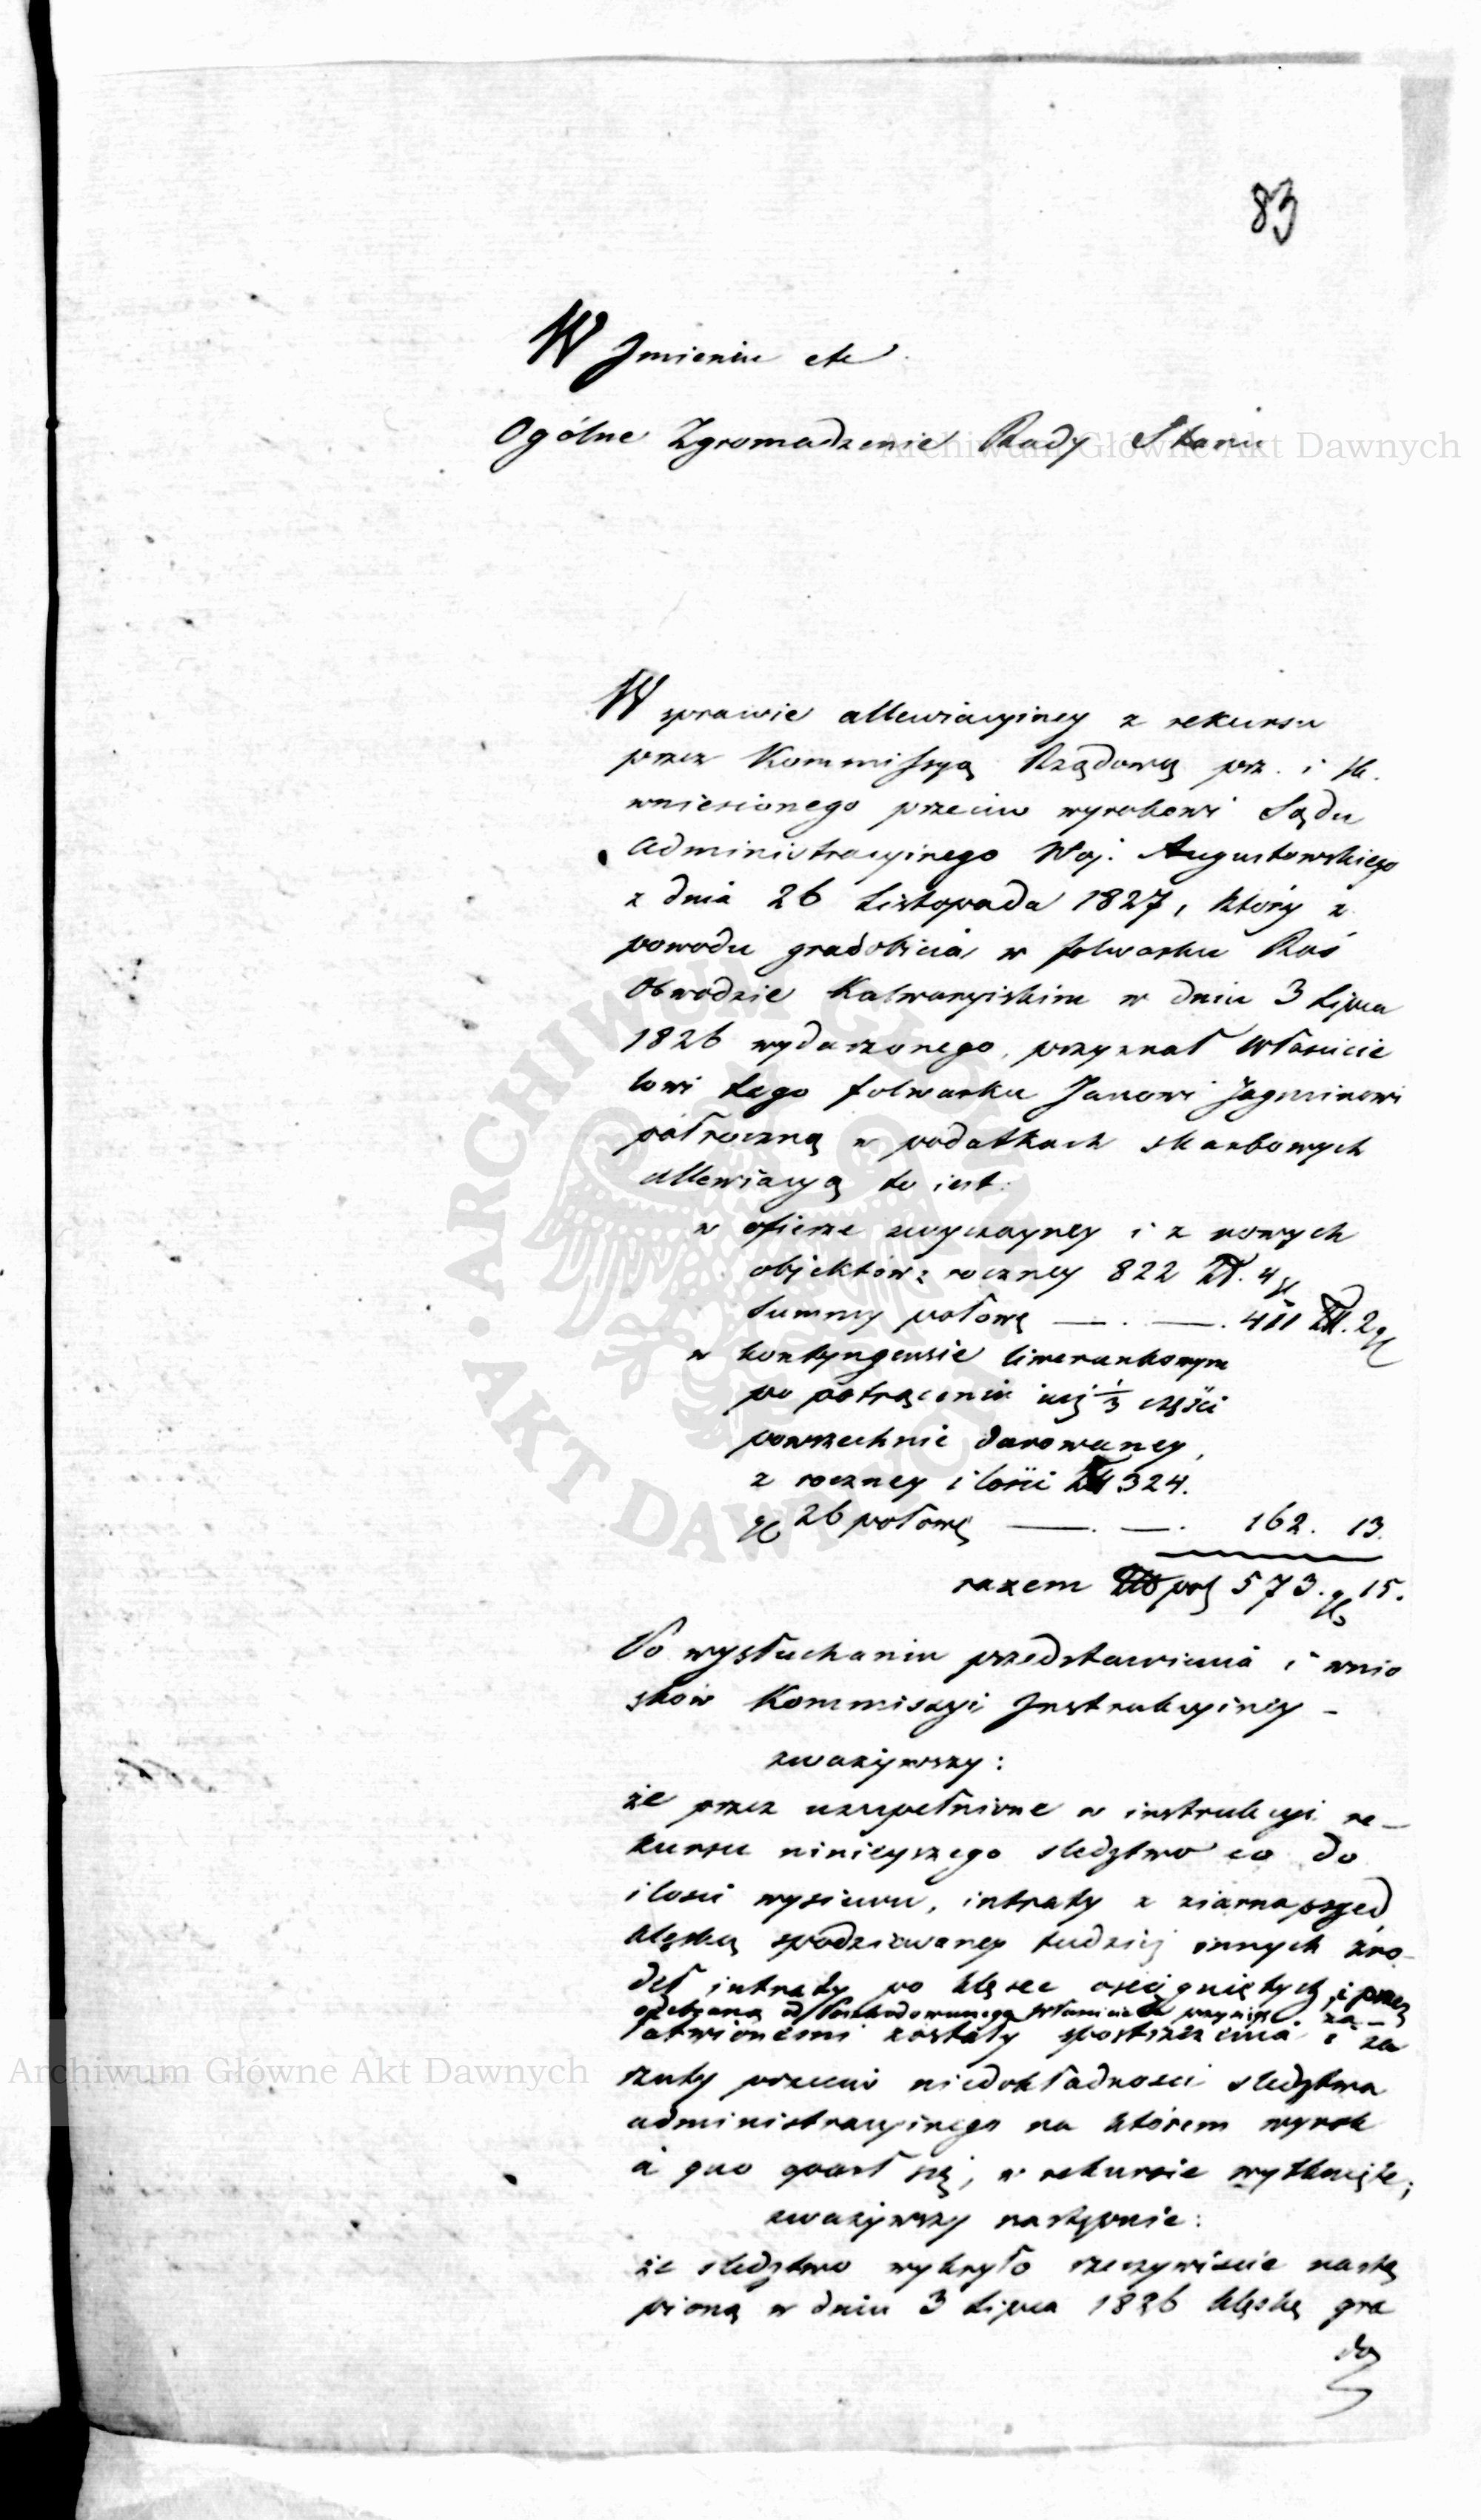 83
W Jmieniu etc
Ogólne Zgromadzenie Rady Stanu
Archiwum Główne Akt Dawnych
W sprawie allewiacyiney z rekursu
przez Kommissyą Rządową prz. i sk.
wniesionego przeciw wyrokowi Sądu
Administracyinego Woj. Augustowskiego
z dnia 26 Listopada 1827, który z
powodu gradobicia w folwarku Roś
Obwodzie Kalwaryiskim w dniu 3 Lipca
1826 wydarzonego, przyznał Właścicie
lowi tego folwarku Janowi Jagminowi
półroczną w podatkach skarbowych
allewiacyą to iest:
w ofierze zwyczayney i z nowych
objektów z roczney 822 Zł. 4 g
Summy połowę — . — . 411 Zł. 2 g
w kontyngensie liwerunkowym
po potrąceniu iuż 1/3 części
powszechnie darowaney,
z roczney ilości Zł 324.
gr 26 połowę — . — . 162. 13.
razem Zło pol 573. gr 15.
Po wysłuchaniu przedstawienia i wnio
sków Kommissyi Jnstrukcyiney –
zważywszy:
że przez uzupełnione w instrukcyi re–
kursu ninieyszego sledztwo co do
ilości wysiewu, intraty z ziarna przed
klęską spodziewaney tudzież innych źró–
deł intraty po klęsce osiągniętych, i przez
odebraną od Poszkodowanego Właściciela przysięgę za–
łatwionemi zostały spostrzeżenia i za
rzuty przeciw niedokładności sledztwa
administracyinego na którem wyrok
a quo oparł się, w rekursie wytknięte;
zważywszy następnie:
że sledztwo wykryło rzeczywiście nastą
pioną w dniu 3 Lipca 1826 klęskę gra
do
Archiwum Główne Akt Dawnych
ARCHIWUM GŁÓWNE AKT DAWNYCH